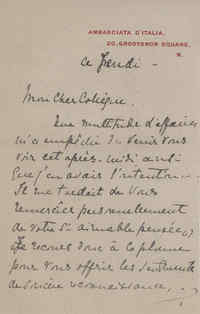 AMBASCIATA D'ITALIA,
20, GROSVENOR SQUARE,
W.
ce Jeudi -
Mon Cher Collègue.
Une multitude d'affaires
m'a empêché de venir vous
voir cet après-midi ainsi
que j'en avais l'intention -
Il me tardait de Vous
remercier personnellement
de votre si aimable pensée,
Je recours donc à la plume
pour Vous offrir les
de sincère reconnaissance.